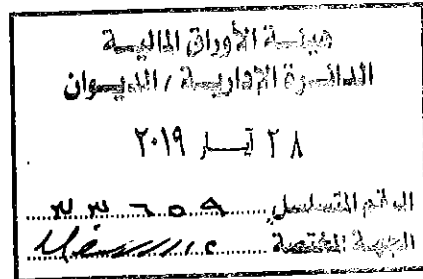 هيئة الأوراق المالية
الدائرة الإدارية / الديوان
٢٨ آيار ٢٠١٩
الرقم المتسلسل ٣٣٦٥٩
الجهة المختصة